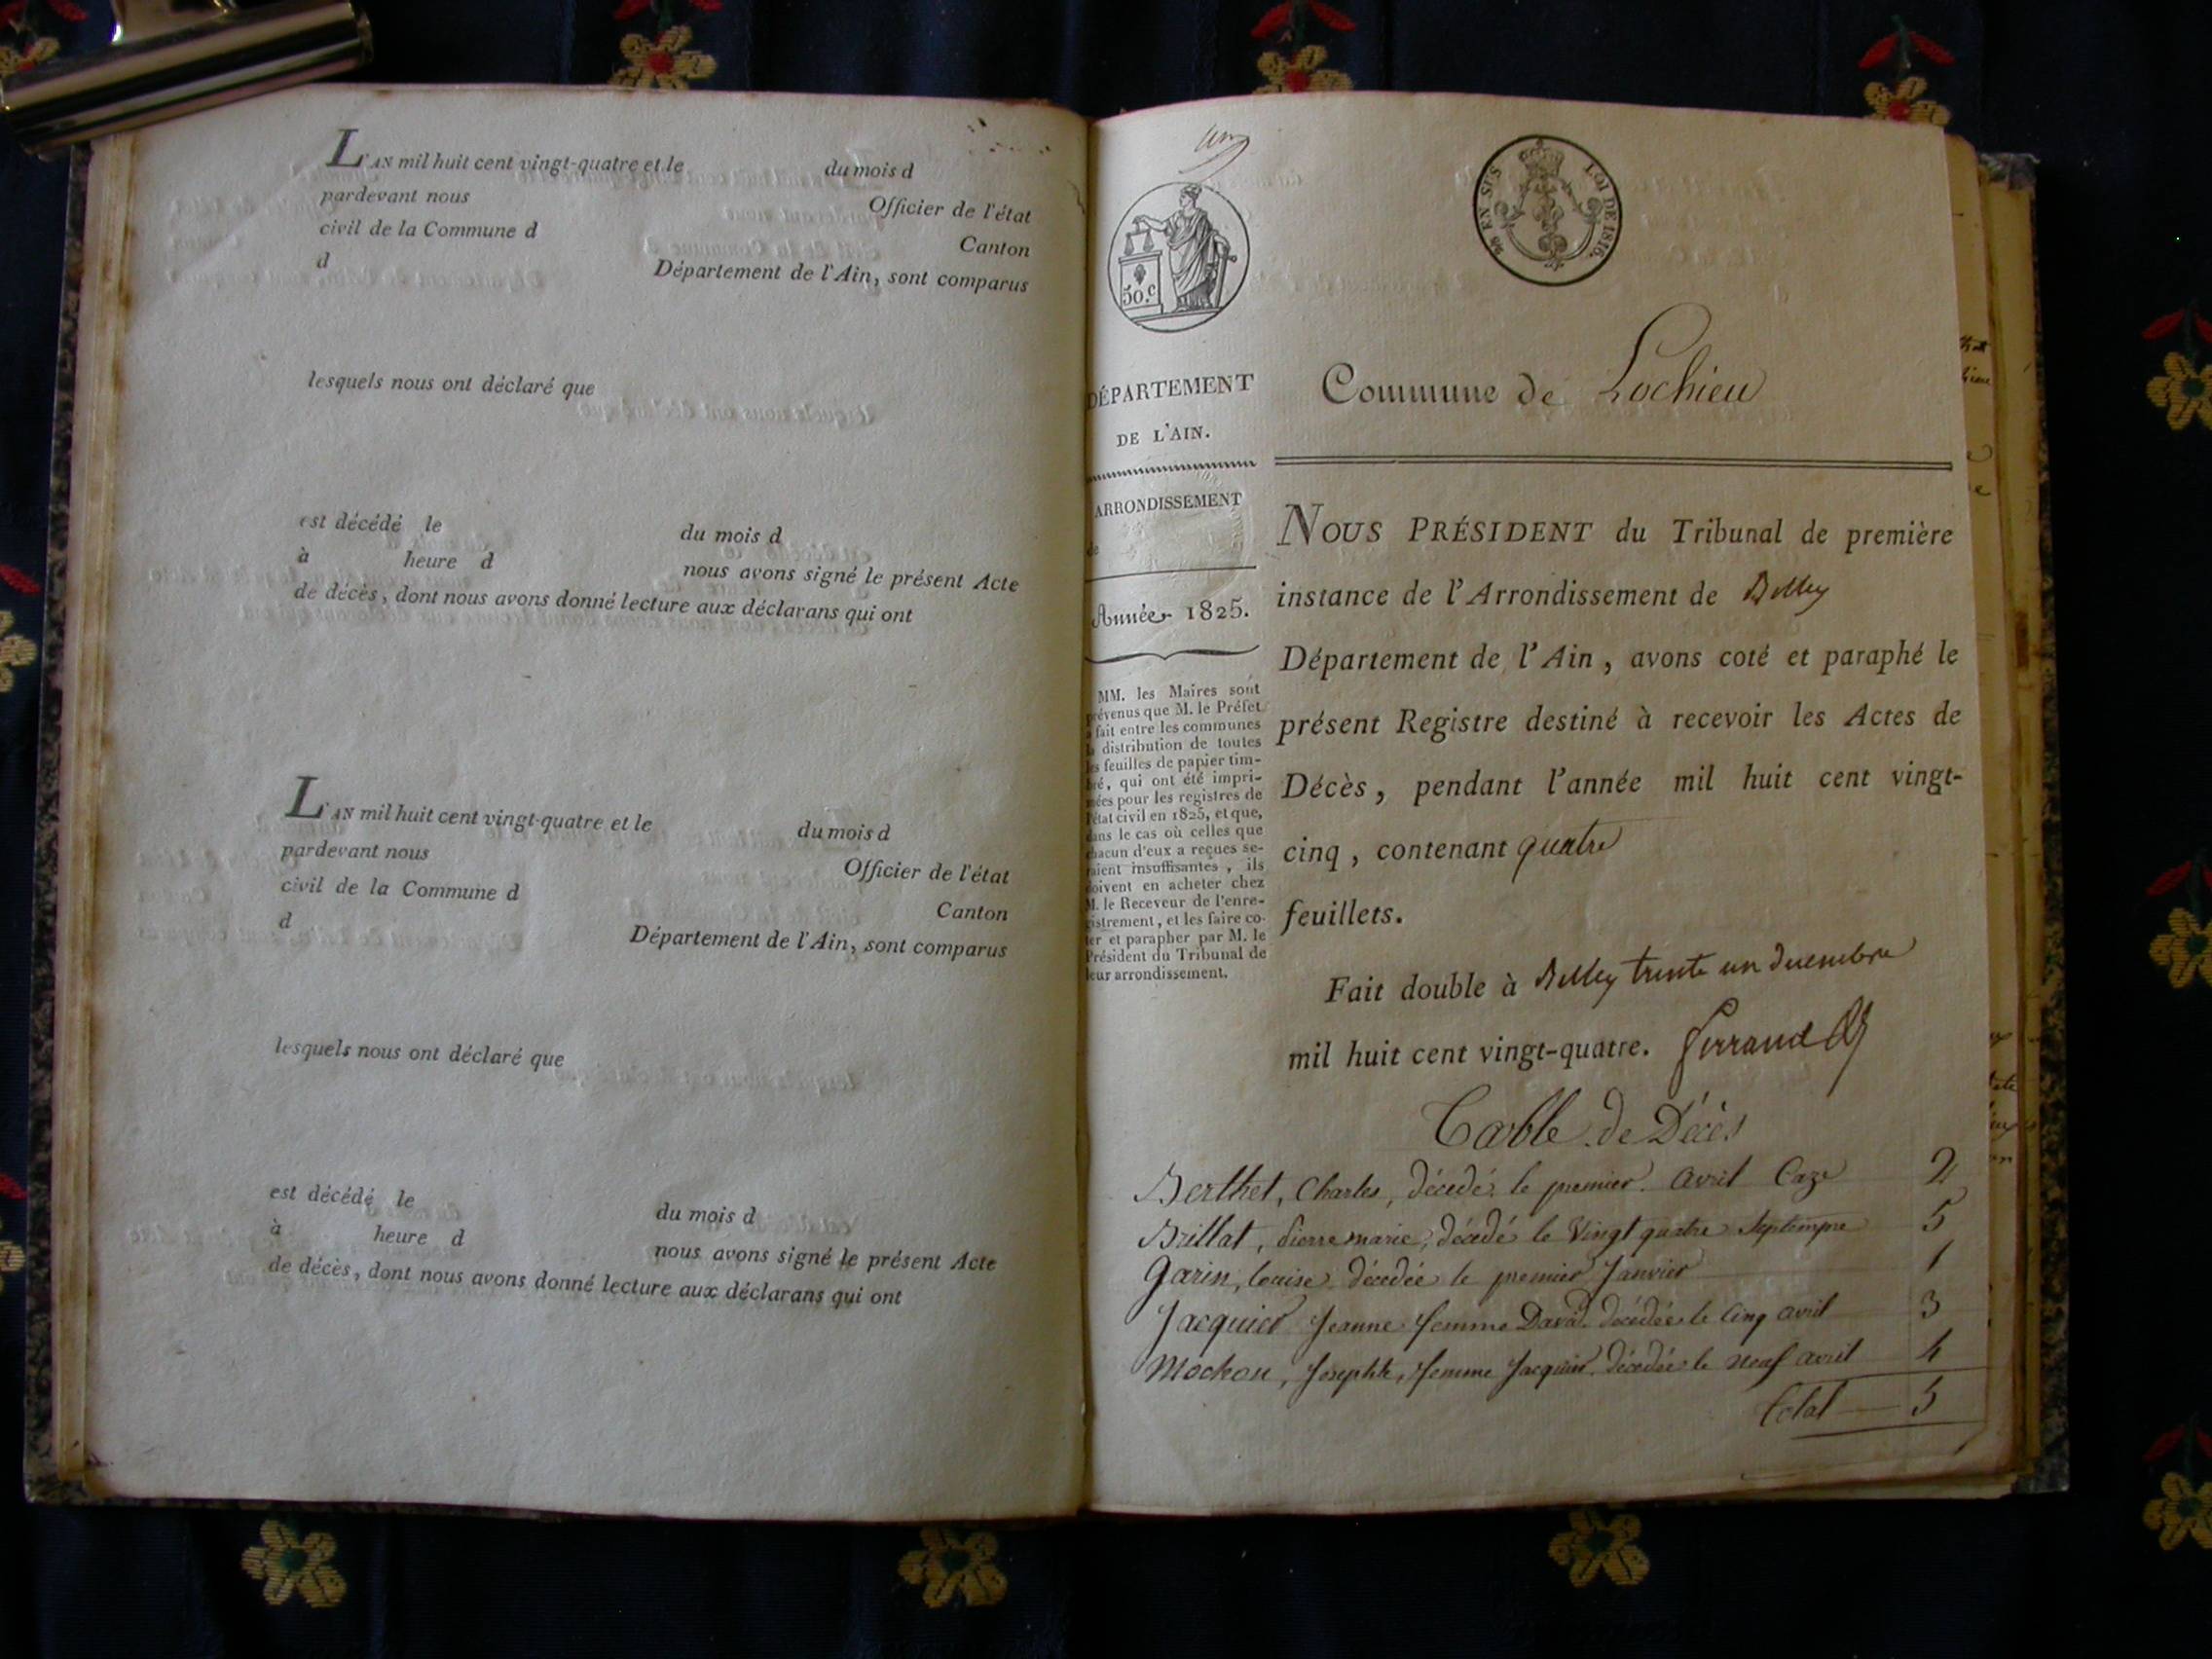 L'AN mil huit cent vingt-quatre et le du mois d
pardevant nous Officier de l'état
civil de la Commune d Canton
d Département de l'Ain, sont comparus
lesquels nous ont déclaré que
est décédé le du mois d
à heure d nous avons signé le présent Acte
de décès, dont nous avons donné lecture aux déclarans qui ont
L'AN mil huit cent vingt-quatre et le du mois d
pardevant nous Officier de l'état
civil de la Commune d Canton
d Département de l'Ain, sont comparus
lesquels nous ont déclaré que
est décédé le du mois d
à heure d nous avons signé le présent Acte
de décès, dont nous avons donné lecture aux déclarans qui ont
50.c
EN SUS LOI DE 1816.
DÉPARTEMENT
DE L'AIN.
ARRONDISSEMENT
de
Année 1825.
MM. les Maires sont
prévenus que M. le Préfet
a fait entre les communes
la distribution de toutes
les feuilles de papier tim-
bré, qui ont été impri-
mées pour les registres de
l'état civil en 1825, et que,
dans le cas où celles que
chacun d'eux a reçues se-
raient insuffisantes, ils
doivent en acheter chez
M. le Receveur de l'enre-
gistrement, et les faire co-
ter et parapher par M. le
Président du Tribunal de
leur arrondissement.
Commune de Lochieu
NOUS PRÉSIDENT du Tribunal de première
instance de l'Arrondissement de Belley
Département de l'Ain, avons coté et paraphé le
présent Registre destiné à recevoir les Actes de
Décès, pendant l'année mil huit cent vingt-
cinq, contenant quatre
feuillets.
Fait double à Belley trente un decembre
mil huit cent vingt-quatre. Ferrand
Table de Décès
Berthet, Charles, décedé le premier avril 2
Brillat, pierre marie, décédé le Vingt quatre Septempre 5
Garin, Louise décedée le premier Janvier 1
Jacquier Jeanne femme David décédée le Cinq avril 3
Mochon, Josephte, femme Jacquier décédée le neuf avril 4
Total 5